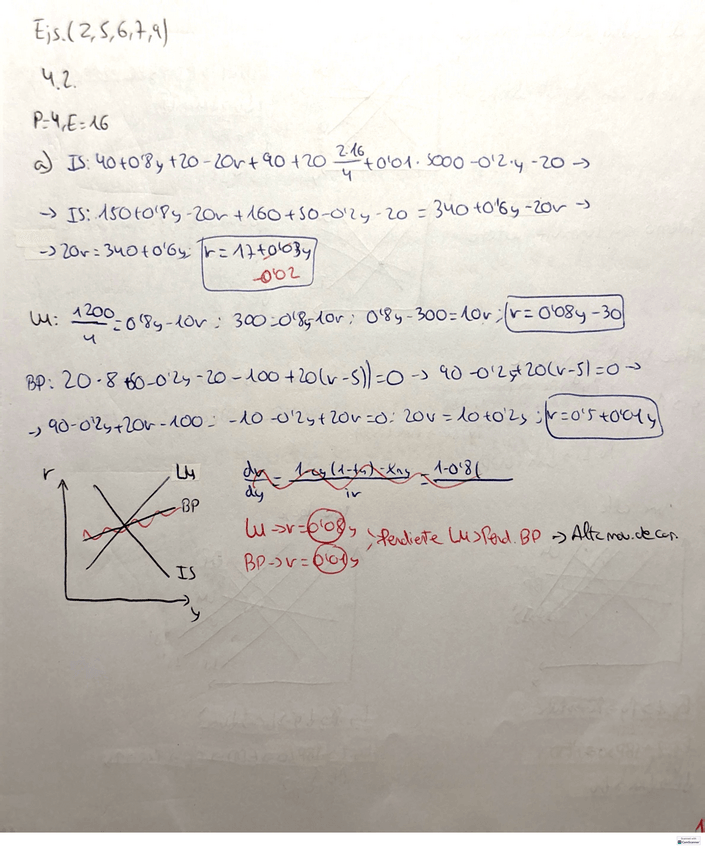 Ejs.(2,5,6,7,9)
4.2.
P=4, E=16
a) IS: 40+0'8y+20-20r+90+20 2·16/4 +0'01·5000-0'2·y-20 →
→ IS: 150+0'8y-20r+160+50-0'2y-20 = 340+0'6y-20r →
→ 20r=340+0'6y; r=17+0'03y
-0'02
LM: 1200/4 = 0'8y-10r; 300=0'8y-10r; 0'8y-300=10r; r=0'08y-30
BP: 20·8+50-0'2y-20-100+20(r-5)=0 → 90-0'2y+20(r-5)=0 →
→ 90-0'2y+20r-100; -10-0'2y+20r=0; 20r=10+0'2y; r=0'5+0'01y
r LM
BP
IS
y
dr/dy = 1-cy(1-ty)-xny/ir = 1-0'8(
LM→r=0'08y
BP→r=0'01y
Pendiente LM>Pend. BP → Alta mov. de cap.
1